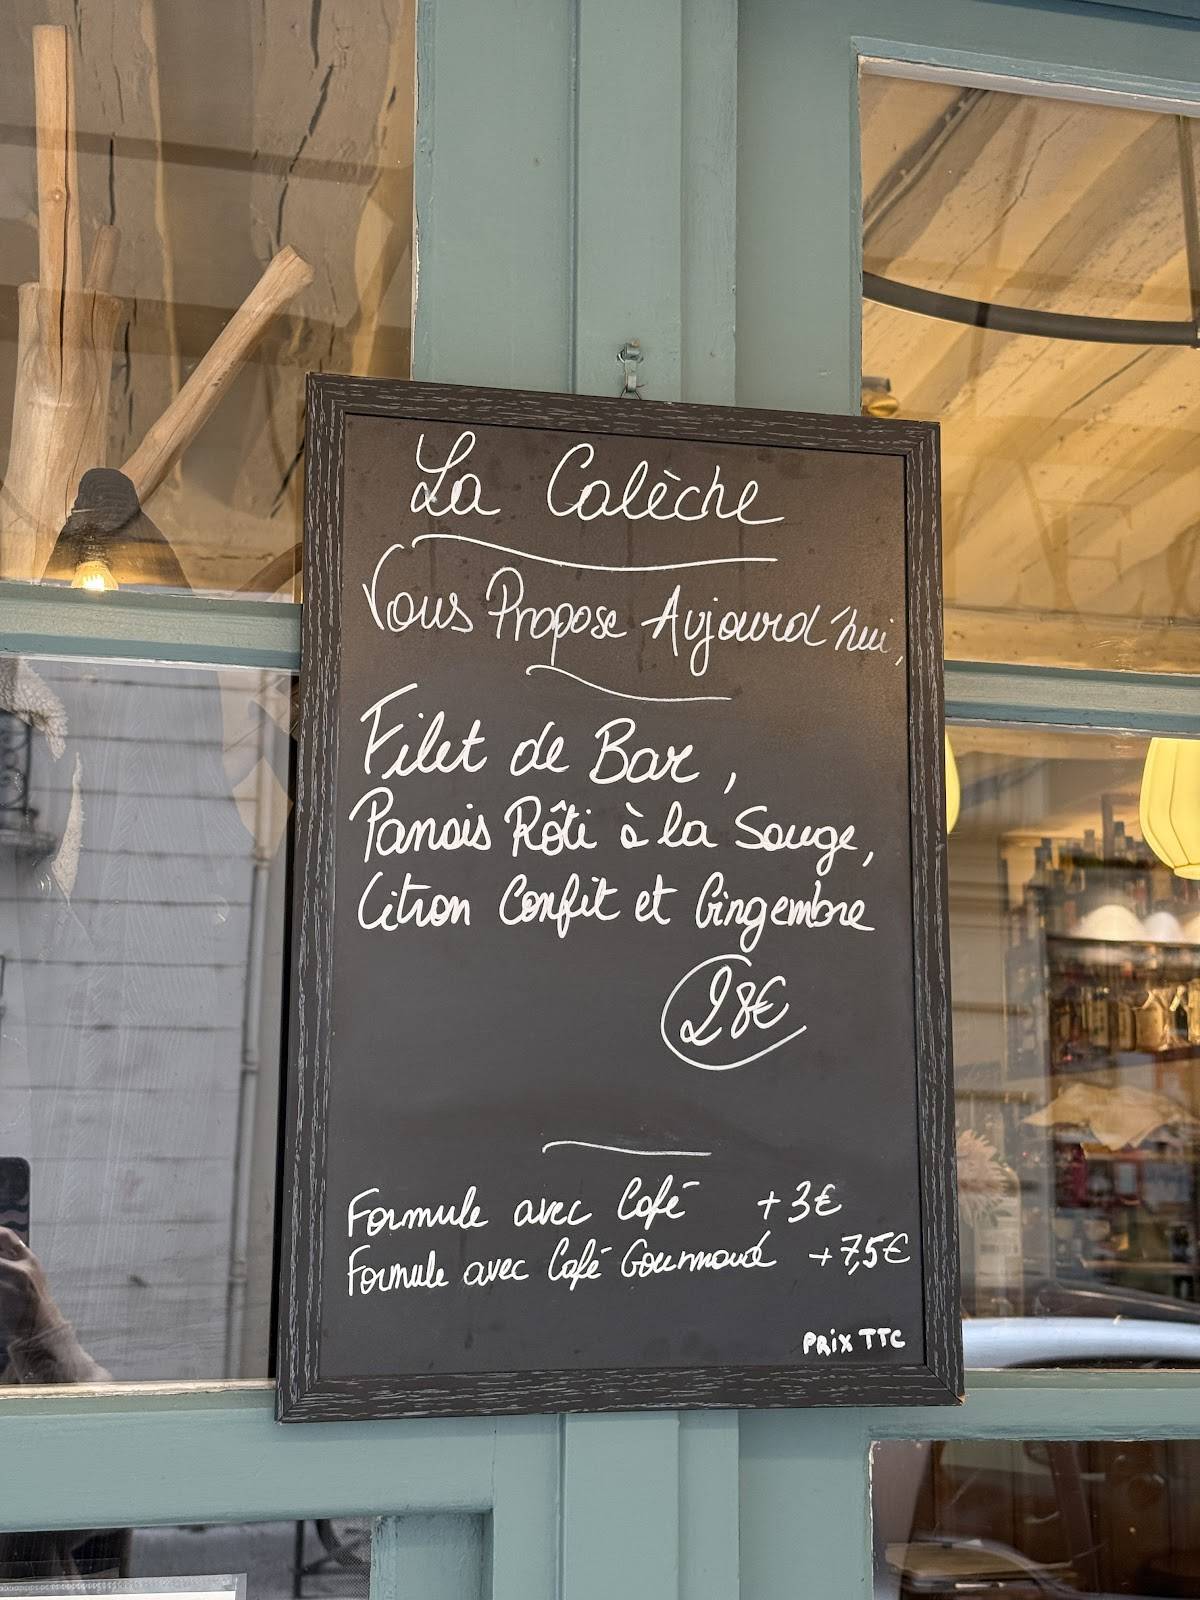 La Calèche
Vous Propose Aujourd'hui,
Filet de Bar,
Panais Rôti à la Sauge,
Citron Confit et Gingembre
28€
Formule avec Café +3€
Formule avec Café Gourmand +7,5€
PRIX TTC